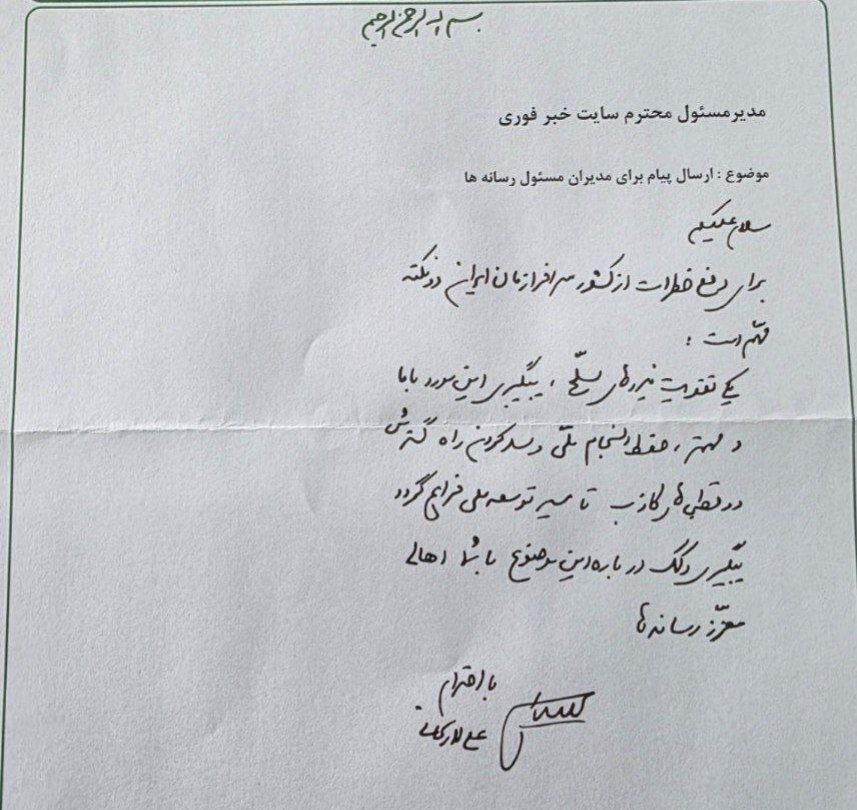 بسم الله الرحمن الرحیم
مدیرمسئول محترم سایت خبر فوری
موضوع : ارسال پیام برای مدیران مسئول رسانه ها
سلام علیکم
برای رفع خطرات از کشور سرافرازمان ایران دو نکته
مهّم است :
یکی تقویت نیروهای مسلّح ، پیگیری این مورد با ما
و مهمتر ، حفظ انسجام ملّی و سد کردن راه گسترش
دوقطبی‌های کاذب تا مسیر توسعه ملی فراهم گردد
پیگیری و کمک درباره این موضوع با شما اهالی
معزّز رسانه‌ها
با احترام
علی لاریجانی